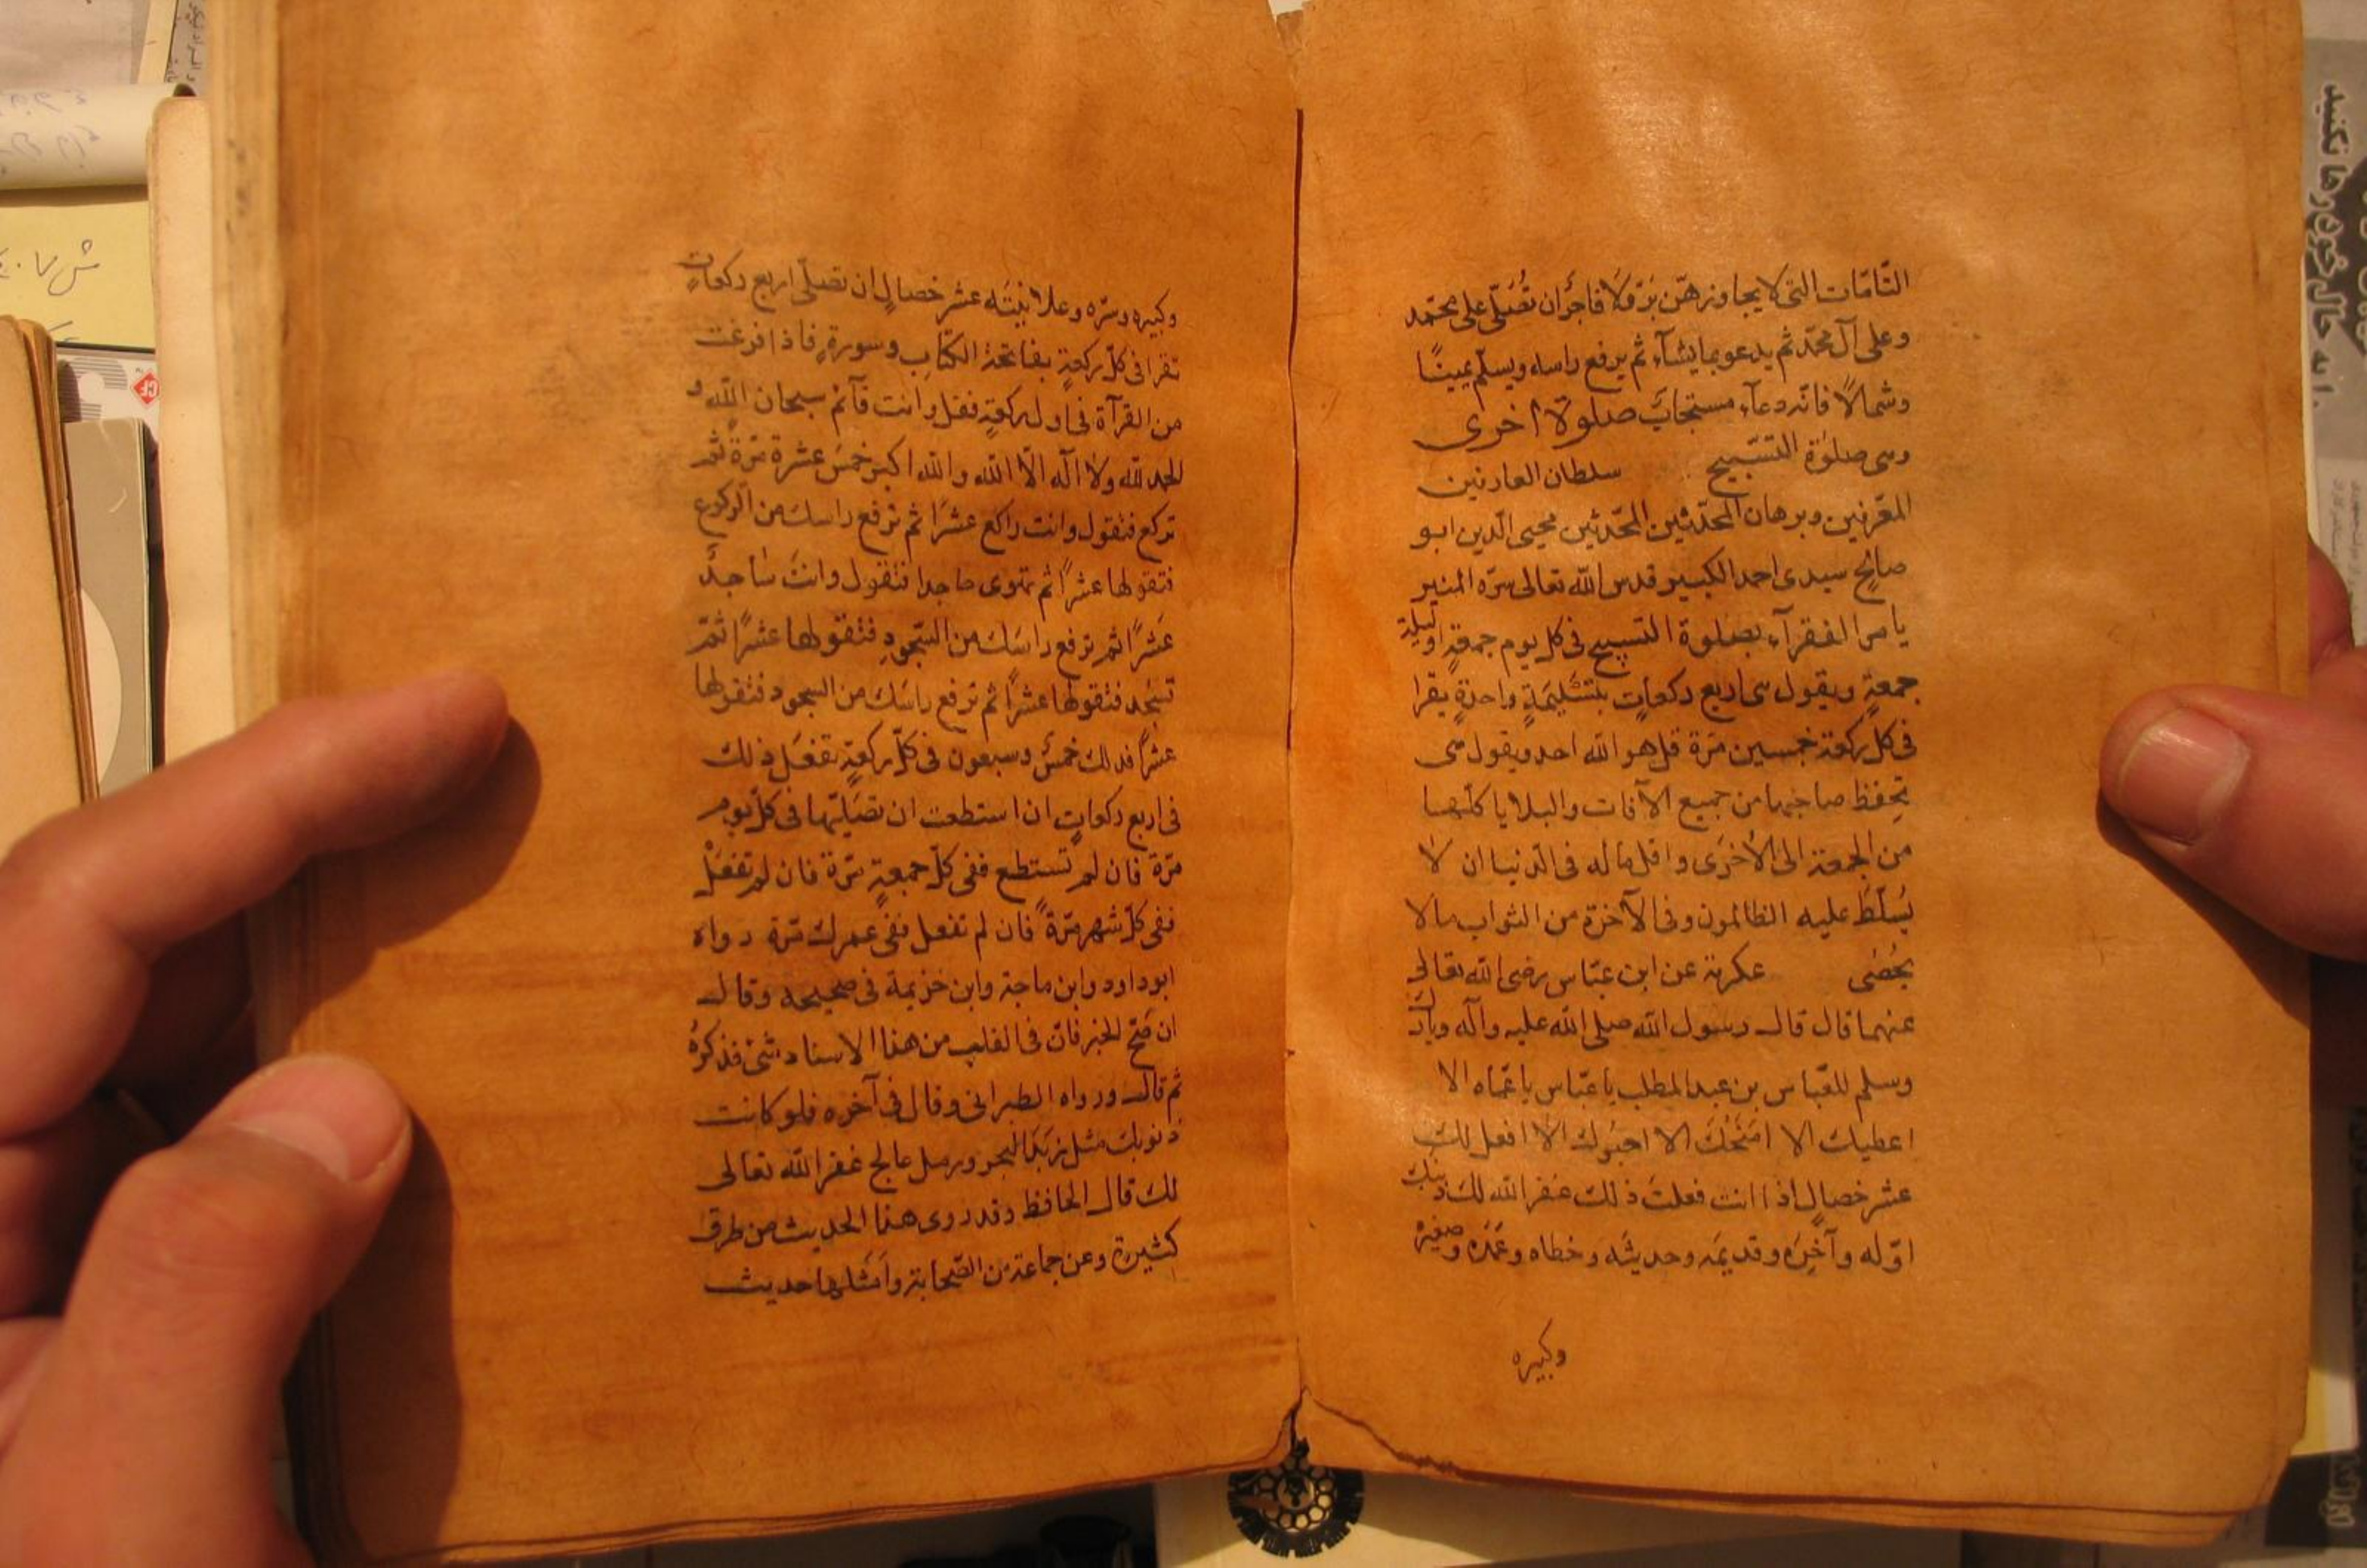 التّامّات التى لا يجاوزهنّ برّ ولا فاجر ان تُصَلّى على محمّد
وعلى آل محمّد ثم يدعو بما يشآء ثم يرفع راسه ويسلّم يمينًا
وشمالًا فانّه دعآء مستجاب صلوة اخرى
وهى صلوٰة التسبيح سلطان العارفين
المقرّبين وبرهان المحدّثين المحدّثين محيى الدّين ابو
صالح سيدى احمد الكبير قدس الله تعالى سرّه المنير
يامر الفقرآء بصلوة التسبيح فى كل يوم جمعةٍ او ليلة
جمعةٍ ويقول هى اربع ركعاتٍ بتسليمةٍ واحدةٍ يقرا
فى كل ركعة خمسين مرّة قل هو الله احد ويقول هى
تحفظ صاحبها من جميع الآفات والبلايا كلّها
من الجمعة الى الأخرى واقل ما له فى الدّنيا ان لا
يُسَلّطَ عليه الظالمون وفى الآخرة من الثواب مالا
يحُصٰى عكرمة عن ابن عبّاس رضى الله تعالى
عنهما قال قال رسول الله صلى الله عليه وآله وبارك
وسلم للعبّاس بن عبد المطلب يا عبّاس يا عمّاه الا
اعطيك الا امنَحُكَ الا احبوك الا افعل لك
عشر خصالٍ اذا انت فعلتَ ذلك غفر الله لك ذنبك
اوّله وآخِرَه وقديمَه وحديثَه وخطاه وعَمَدَه وصغيره
وكبيره
وكبيره وسرّه وعلانيتَه عشر خصالٍ ان تصلّى اربع ركعاتٍ
تقرا فى كلّ ركعةٍ بفاتحة الكتابِ وسورةٍ فاذا فرغت
من القرآة فى اول ركعةٍ فقل وانت قآئم سبحان الله و
الحمد لله ولا اله الّا الله والله اكبر خمسَ عشرة مرّةً ثم
تركع فتقول وانت راكع عشرًا ثم ترفع راسك من الركوع
فتقولها عشرًا ثم تهوى ساجدا فتقول وانت ساجدٌ
عَشرًا ثم ترفع راسَكَ من السّجودِ فتقولها عشرًا ثمّ
تسجُد فتقولها عشرًا ثم ترفع راسَك من السجود فتقولها
عشرًا فذلك خمسٌ وسبعون فى كلّ ركعةٍ تفعَل ذلك
فى اربع ركعاتٍ ان استطعت ان تصَليّها فى كلّ يوم
مرّة فان لم تستطع ففى كلّ جمعةٍ مرّة فان لم تفعَلْ
ففى كلّ شهر مرّةً فان لم تفعل ففى عمرك مرّة رواه
ابو داود وابن ماجة وابن خزيمة فى صحيحه وقال
ان صَحّ الخبر فانّ فى القلب من هذا الاسناد شئ فذكرهُ
ثم قال ورواه الطبرانى وقال فى آخره فلو كانت
ذنوبك مثل زبَد البحر ورمل عالج غفر الله تعالى
لك قال الحافظ وقد روى هذا الحديث من طرق
كثيرة وعن جماعة من الصّحابة وامَثلها حديث